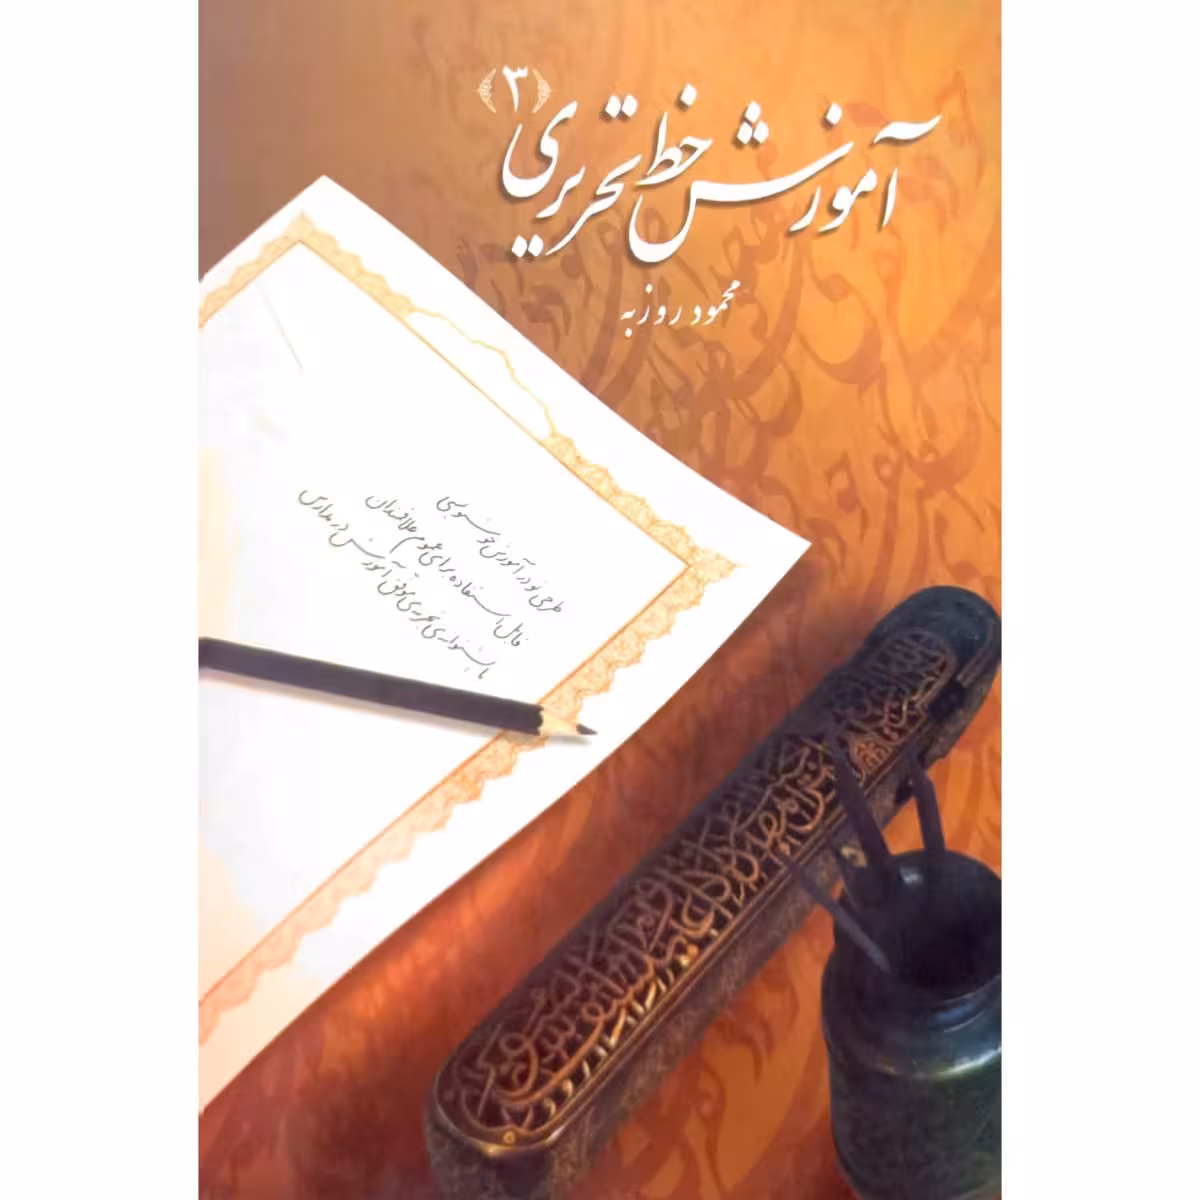 آموزش خط تحریری ﴿۳﴾
محمود روزبه
طرحی نو در آموزش خوشنویسی
قابل استفاده برای عموم علاقمندان
با پشتوانه‌ی تجربه‌ی موفق آموزش در مدارس